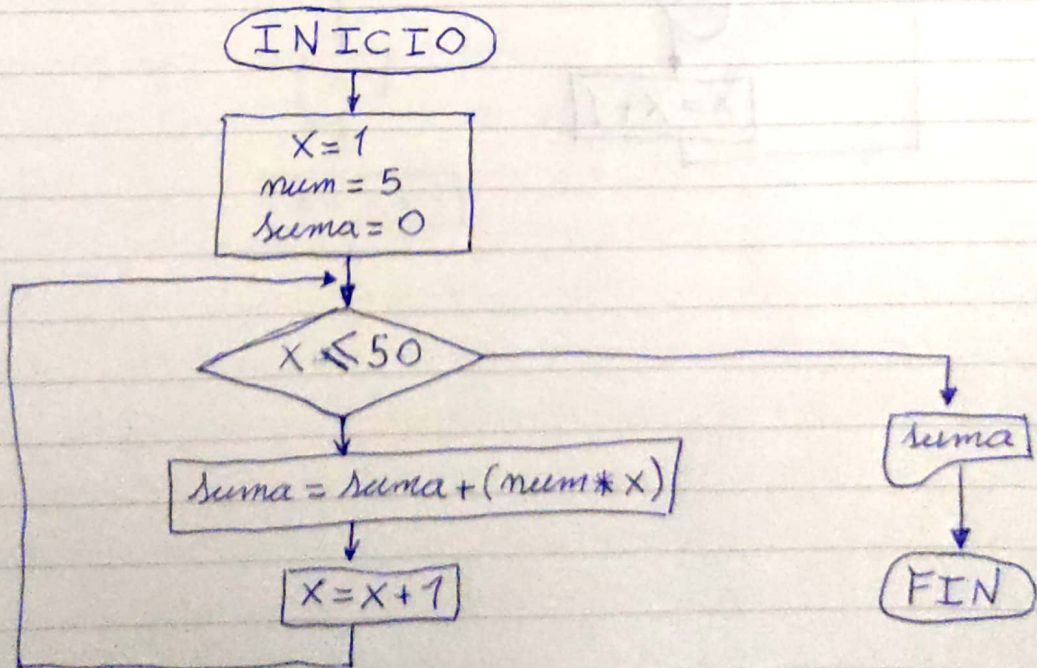 INICIO
x = 1
num = 5
suma = 0
x ≤ 50
suma = suma + (num * x)
x = x + 1
suma
FIN